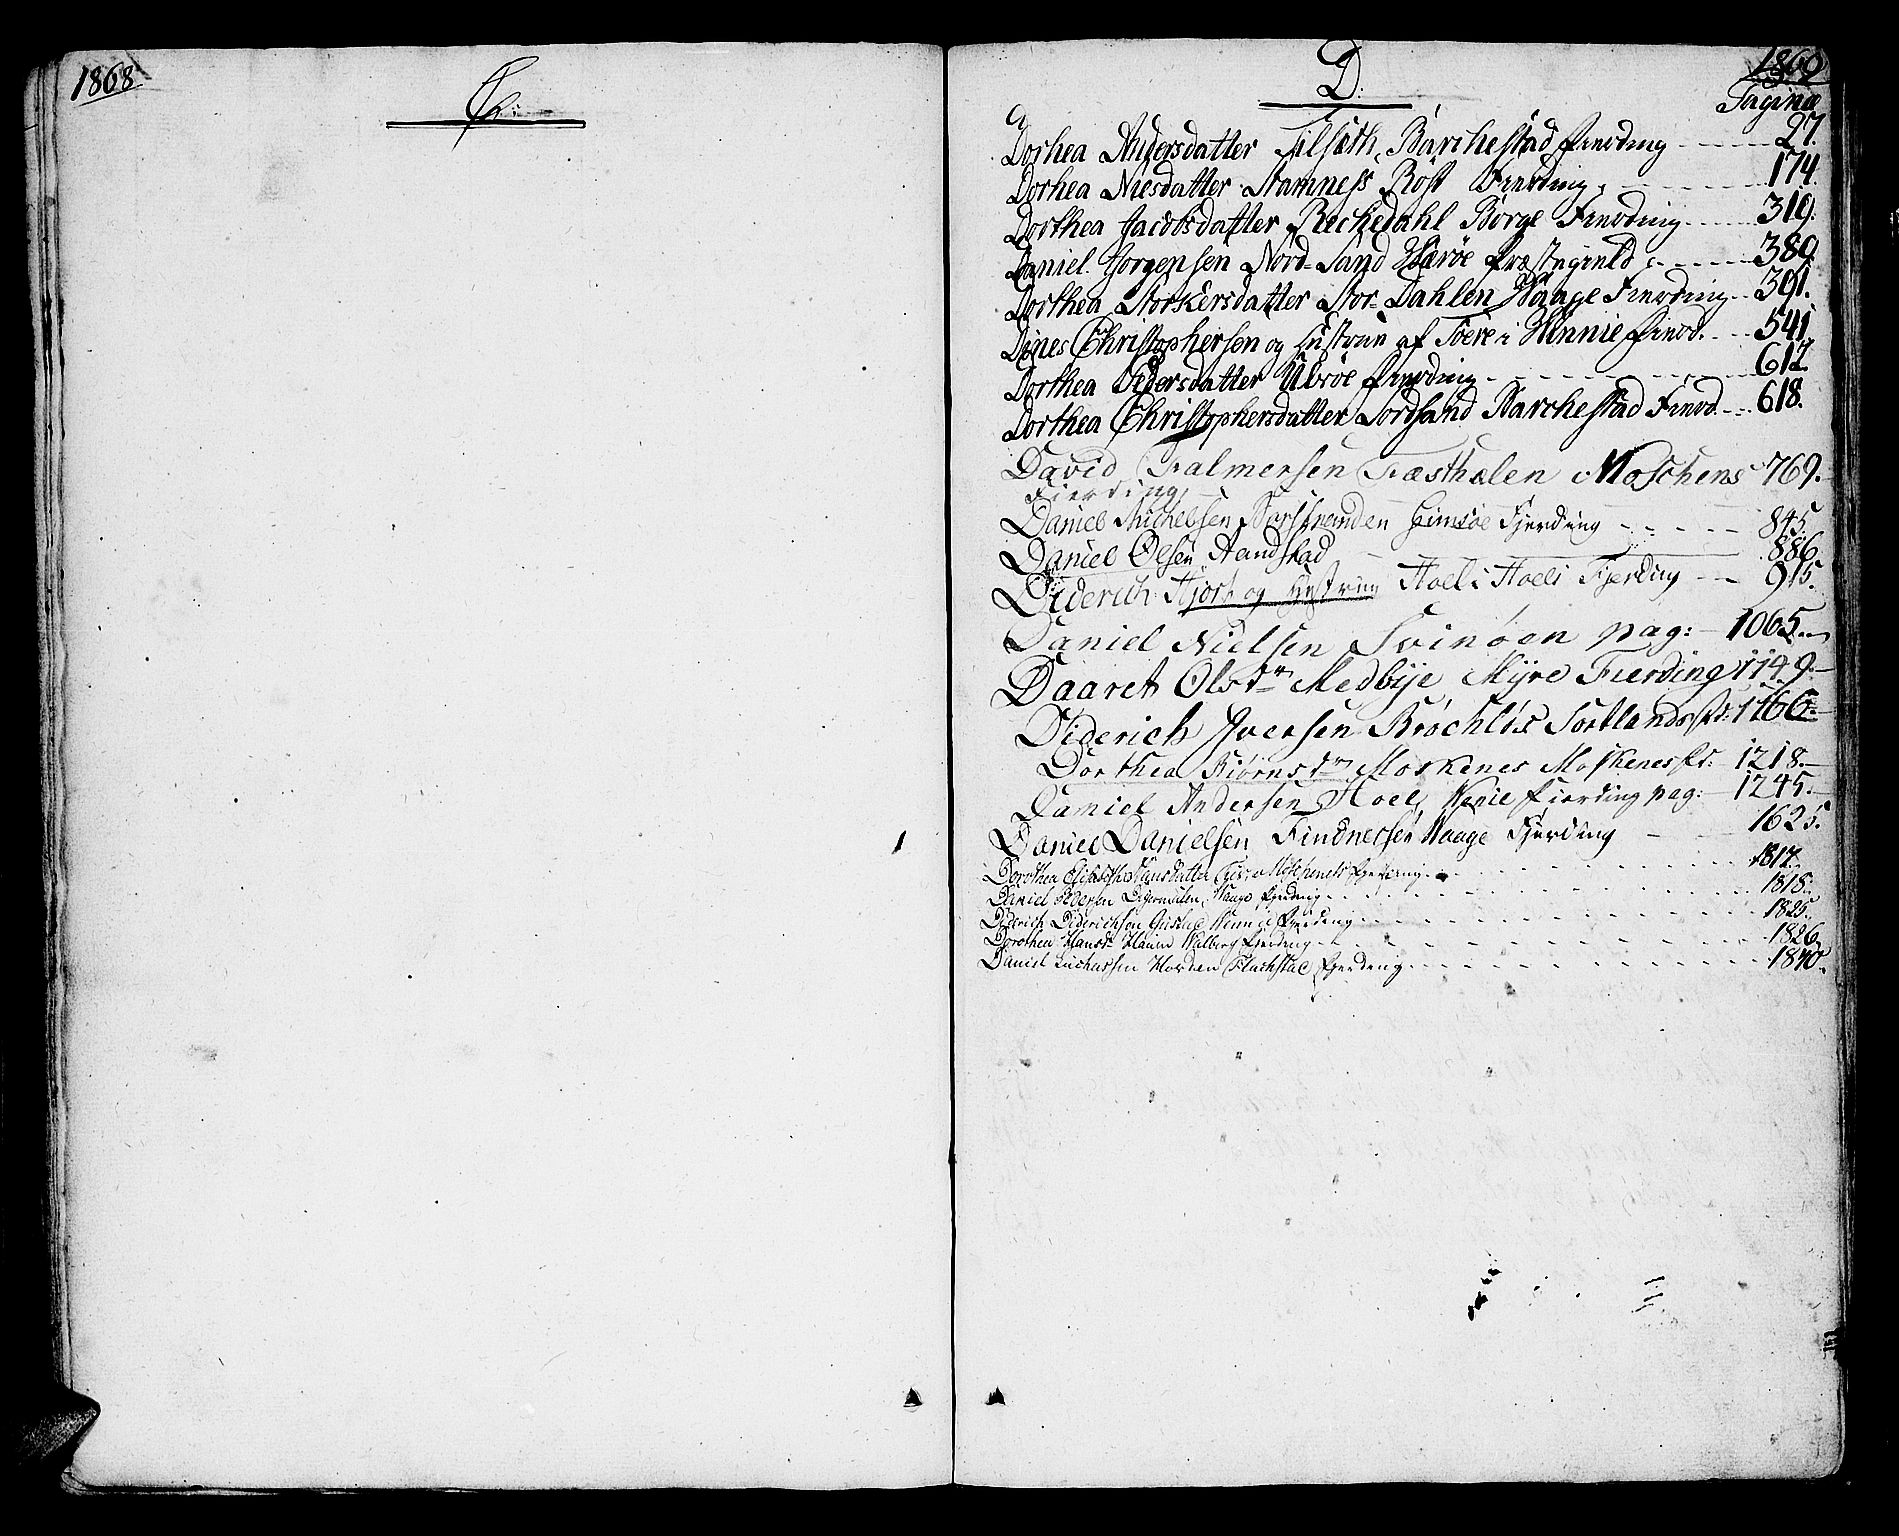 1868
C:
1869
D:
Pagina
Dorhea Andersdatter Tilsæth, Barchestad Fierding 27.
Dorhea Niesdatter Stamness Röst Fierding 174
Dorthea Jacobsdatter Rechedahl Borge Fierding 319.
Daniel Jorgensen Nord-Sand Værøe Præstegield 389.
Dorthea Storkersdatter Stor-Dahlen Waage Fierding 391.
Dines Christophersen og Hustrue af i Winnie Fierd. 541.
Dorthea Pedersdatter Ulvøe Fierding 617.
Dorthea Christophersdatter Sordsand Barchestad Fierd. 618.
David Falmersen Fæsthælen Moschens 769.
Fierding
Daniel Michelsen Gimsøe Fjerding 845.
Daniel Olsen Aandstad 886.
Diderich Hjort og Hustrue Hoel i Hoels Fjerding 915.
Daniel Nielsen Svinøen pag: 1065.
Daaret Olsdr Medbye Myre Fierding 1149.
Diderich Iversen Brochløs Sortlands fd: 1166.
Dorthea Biørnsdr Moskenes Moskenes fd: 1218.
Daniel Andersen Hoel, Wenie fierding pag: 1245.
Daniel Danielsen Findnessen Waage Fjerding 1625.
Dorothea Elisabeth Hansdatter Moschenes fjerding 1817.
Daniel Pedersen Digermulen, Waage fjerding 1818.
Diderich Diderichsen Wennie fjerding 1825.
Dorothea Hansdr Walberg fjerding 1826.
Daniel Luchassen Flachstad fjerding 1840.